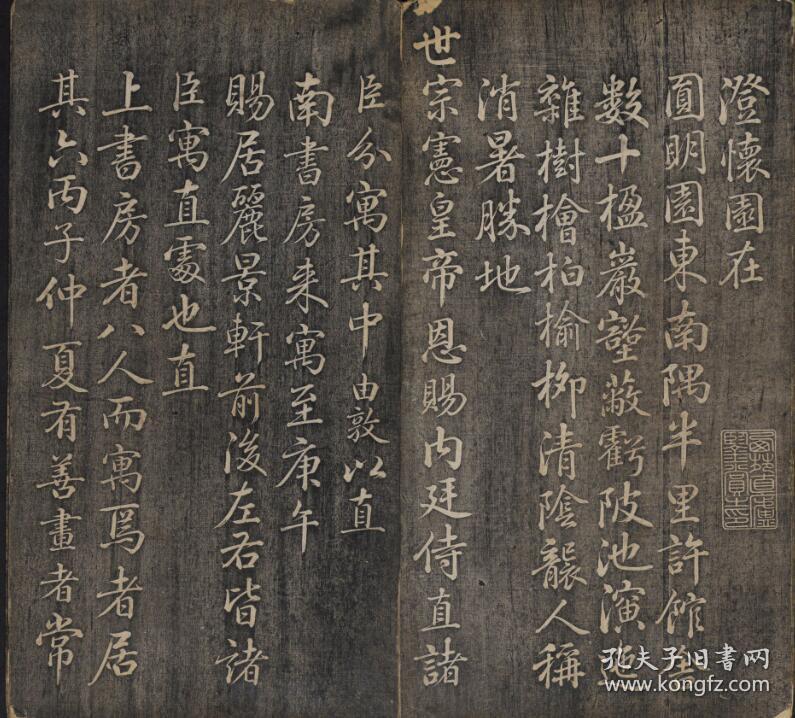 澄懷園在
圓明園東南隅半里許館舍
數十楹巖壑蔽虧陂池演迤
雜樹檜柏榆柳清陰襲人稱
消暑勝地
世宗憲皇帝恩賜内廷侍直諸
臣分寓其中由敦以直
南書房来寓至庚午
賜居麗景軒前後左右皆諸
臣寓直處也直
上書房者八人而寓焉者居
其六丙子仲夏有善畫者常
孔夫子旧書网
www.kongfz.com